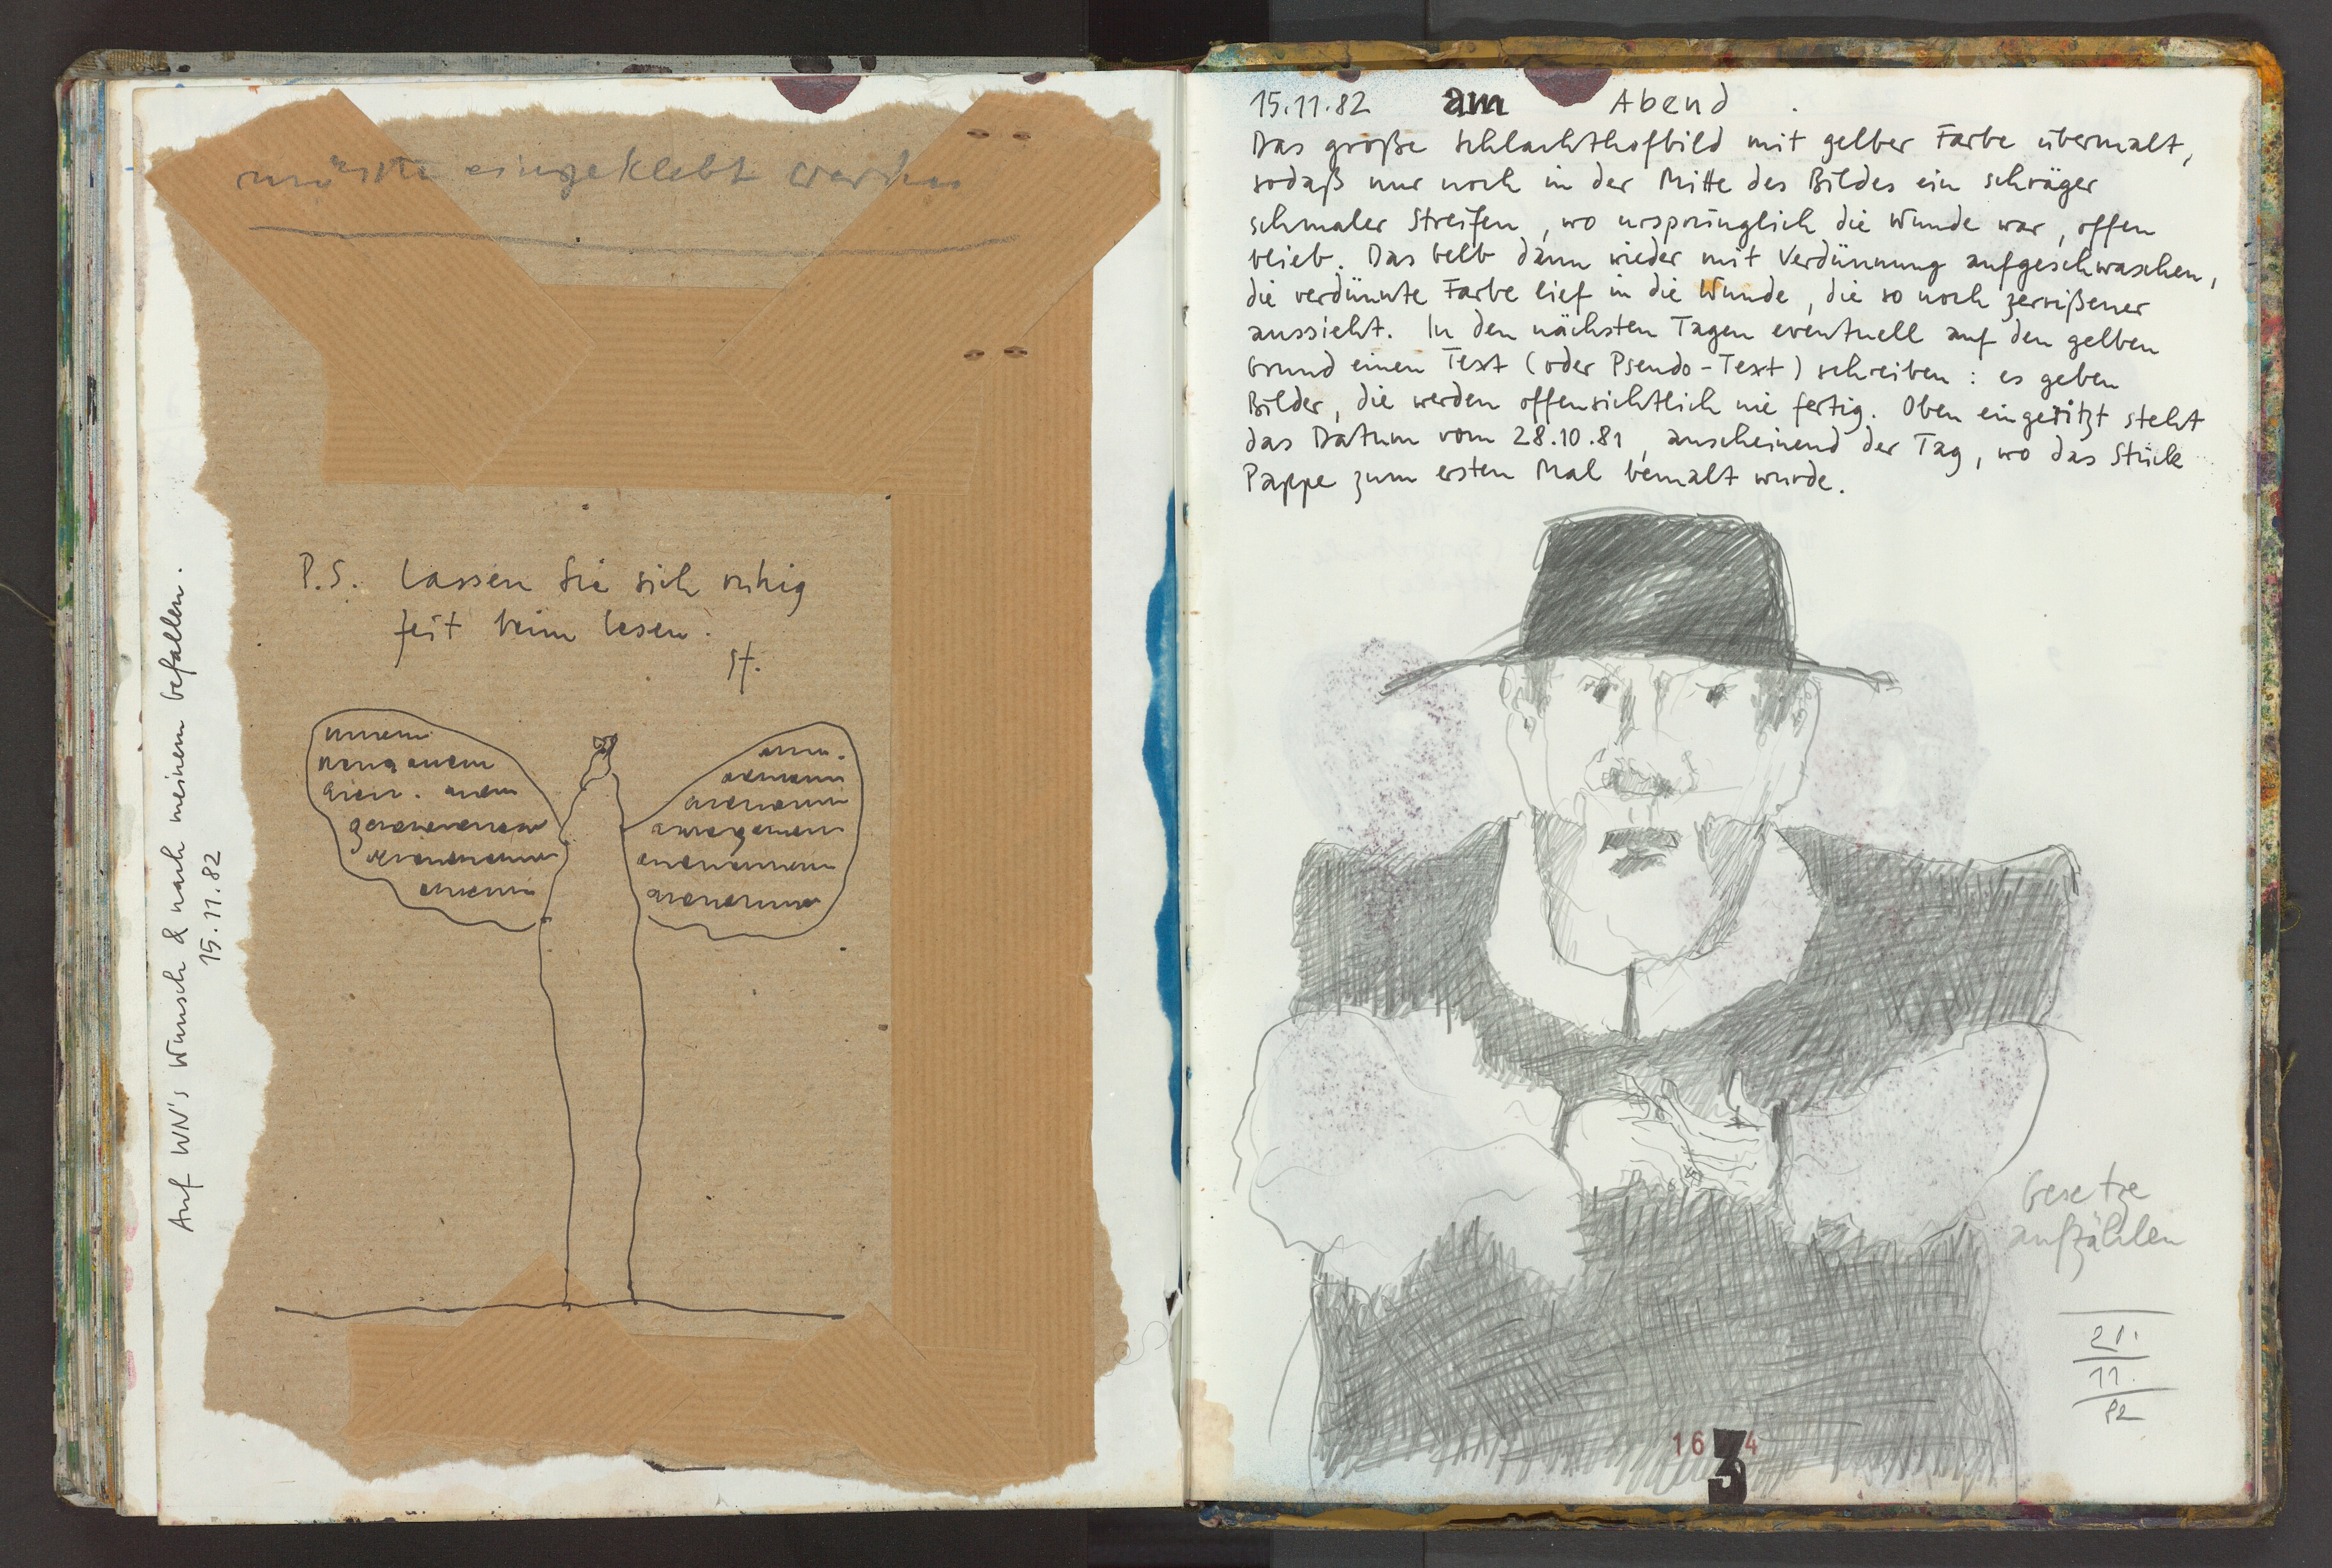 müsste eingeklebt werden
P.S. lassen Sie sich ruhig
Zeit beim lesen.
St.
Auf WN's Wunsch & nach meinem befallen.
15.11.82
15.11.82 am Abend .
Das große Schlachthofbild mit gelber Farbe übermalt,
sodaß nur noch in der Mitte des Bildes ein schräger
schmaler Streifen, wo ursprünglich die Wunde war, offen
blieb. Das Gelb dann wieder mit Verdünnung aufgeschwaschen,
die verdünnte Farbe lief in die Wunde, die so noch zerrißener
aussieht. In den nächsten Tagen eventuell auf den gelben
Grund einen Text (oder Pseudo-Text) schreiben: es geben
Bilder, die werden offensichtlich nie fertig. Oben eingeritzt steht
das Datum vom 28.10.81, anscheinend der Tag, wo das Stück
Pappe zum ersten Mal bemalt wurde.
Gesetze
aufzählen
21.
11.
82
16 3 4